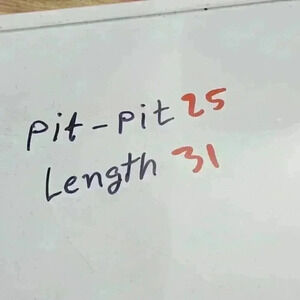 Pit-Pit 25
Length 31